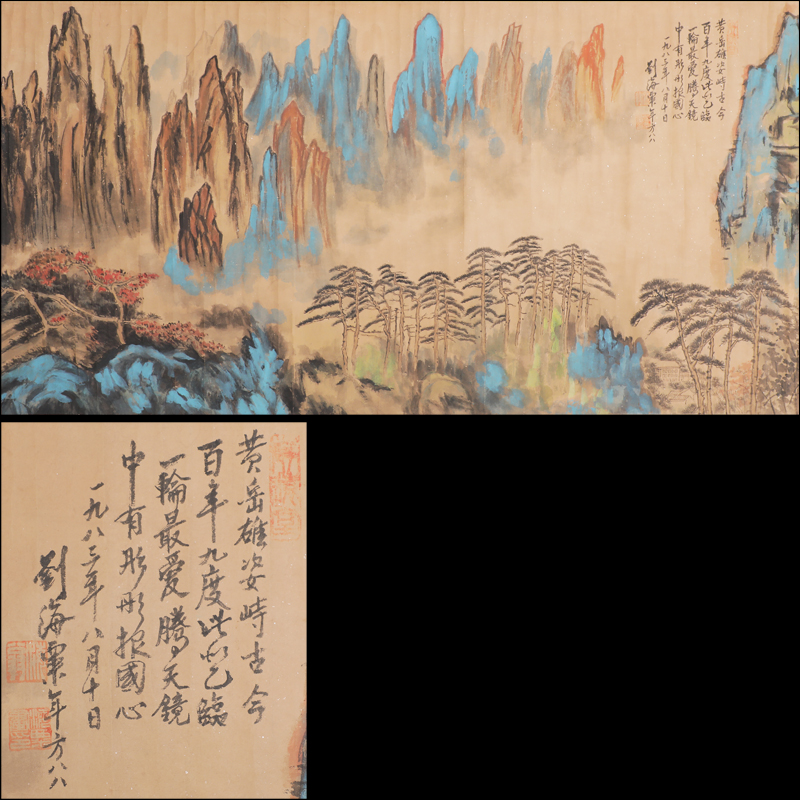 黄岳雄姿峙古今
百年九度此臨
一輪最愛騰天鏡
中有彤彤报國心
一九八三年八月十日
劉海粟年方八八
黄岳雄姿峙古今
百年九度此臨
一輪最愛騰天鏡
中有彤彤报國心
一九八三年八月十日
劉海粟年方八八